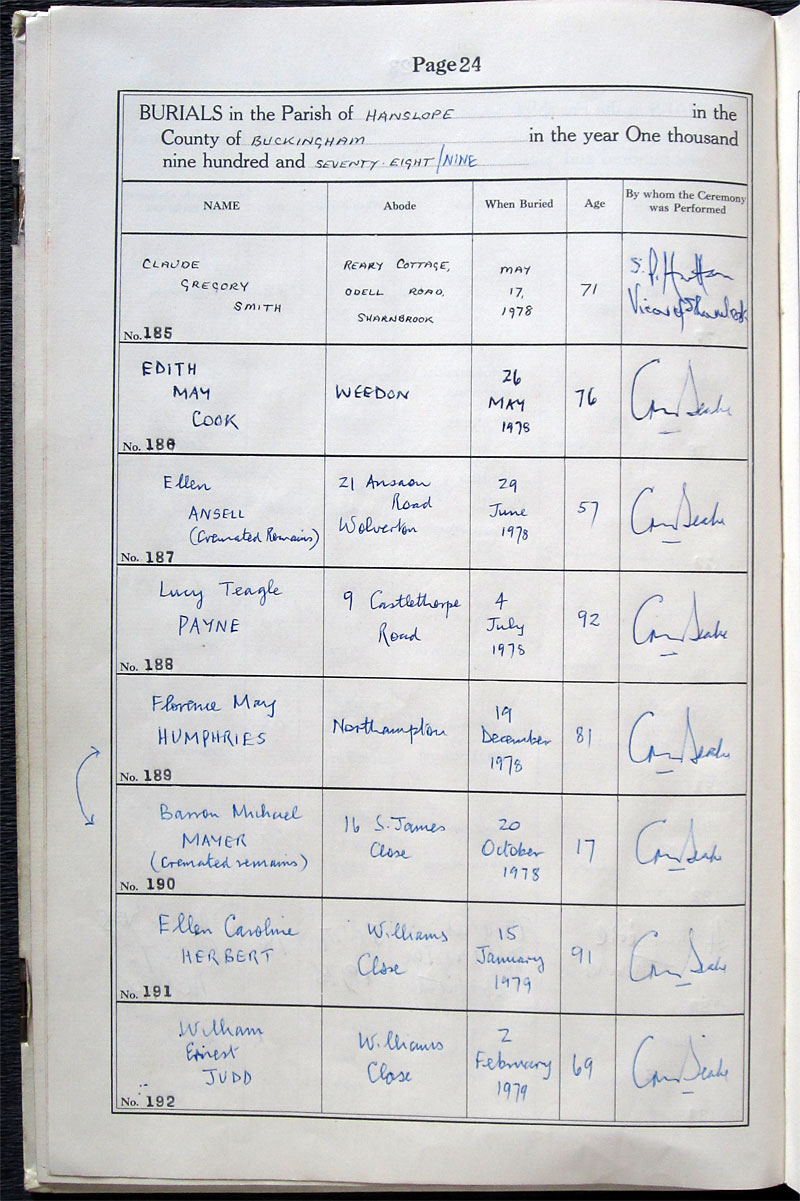 Page 24
BURIALS in the Parish of HANSLOPE in the
County of BUCKINGHAM in the year One thousand
nine hundred and SEVENTY-EIGHT/NINE
NAME Abode When Buried Age By whom the Ceremony was Performed
CLAUDE
GREGORY
SMITH
No. 185
REARY COTTAGE,
ODELL ROAD,
SHARNBROOK
MAY
17,
1978
71
Vicar of Sharnbrook
EDITH
MAY
COOK
No. 186
WEEDON
26
MAY
1978
76
Ellen
ANSELL
(Cremated Remains)
No. 187
21 Anson
Road
Wolverton
29
June
1978
57
Lucy Teagle
PAYNE
No. 188
9 Castlethorpe
Road
4
July
1978
92
Florence May
HUMPHRIES
No. 189
Northampton
19
December
1978
81
Barron Michael
MAYER
(Cremated remains)
No. 190
16 S. James
Close
20
October
1978
17
Ellen Caroline
HERBERT
No. 191
Williams
Close
15
January
1979
91
William
Ernest
JUDD
No. 192
Williams
Close
2
February
1979
69